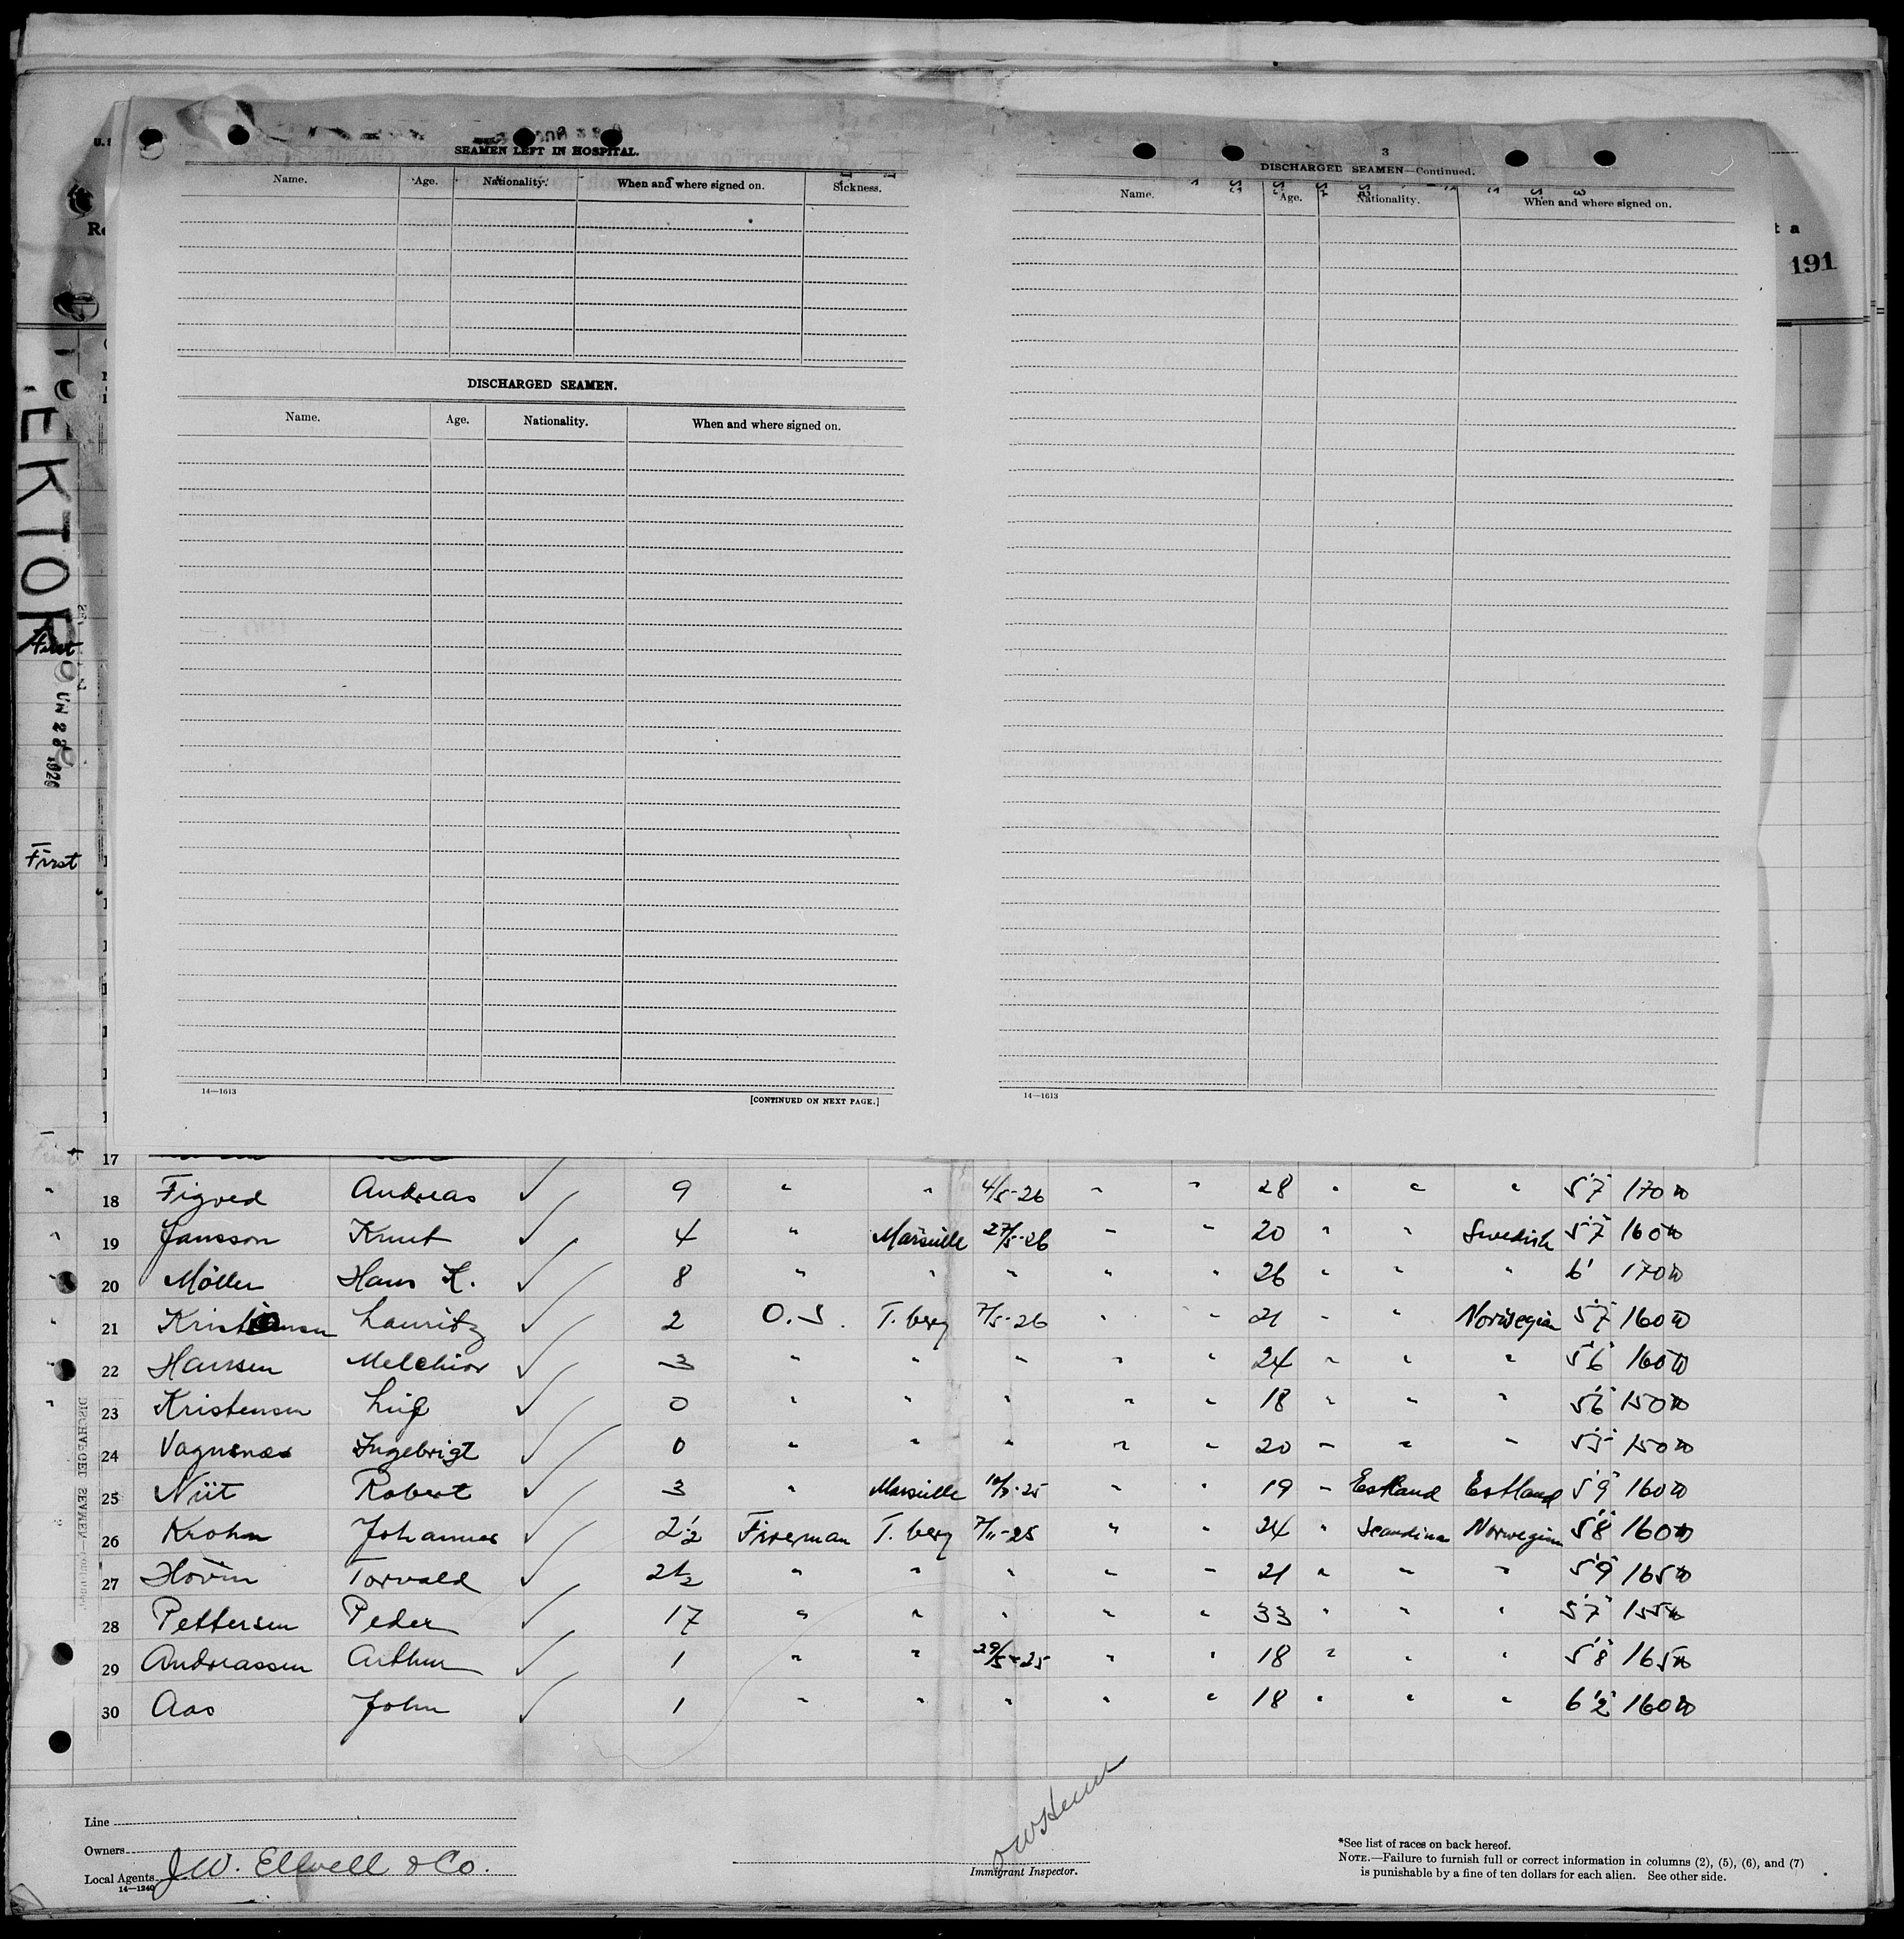 SEAMEN LEFT IN HOSPITAL.
Name. Age. Nationality. When and where signed on. Sickness.
DISCHARGED SEAMEN.
Name. Age. Nationality. When and where signed on.
14—1613
[CONTINUED ON NEXT PAGE.]
3
DISCHARGED SEAMEN—Continued.
Name. Age. Nationality. When and where signed on.
14—1613
t a
191
EKTOR
First
UN 28 1926
First
17
" 18 Figved Andreas ✓ 9 " " 4/5-26 " " 28 " " " 5'7" 170 lb
" 19 Jansson Knut ✓ 4 " Marseille 27/5-26 " " 20 " " Swedish 5'7" 160 lb
20 Möller Hans K. ✓ 8 " " " " " 26 " " " 6' 170 lb
" 21 Lauritz ✓ 2 O.S. T.berg 7/5-26 " " 21 " " Norwegian 5'7" 160 lb
22 Hansen Melchior ✓ 3 " " " " " 24 " " " 5'6" 160 lb
" 23 Kristensen Leif ✓ 0 " " " " " 18 " " " 5'6" 150 lb
24 Vagnsnæs Ingebrigt ✓ 0 " " " " " 20 " " " 5'5" 150 lb
25 Niit Robert ✓ 3 " Marseille " " 19 " Estland Estland 5'9" 160 lb
26 Krohn Johannes ✓ 2½ Fireman T.berg 7/11-25 " " 24 " Scandina Norwegian 5'8" 160 lb
27 Hovin Torvald ✓ 2½ " " " " " 21 " " " 5'9" 165 lb
28 Pettersen Peder ✓ 17 " " " " " 33 " " " 5'7" 155 lb
29 Andreassen Arthur ✓ 1 " " 29/5-25 " " 18 " " " 5'8" 165 lb
30 Aas John ✓ 1 " " " " " 18 " " " 6'2" 160 lb
Line
Owners
Local Agents J.W. Ellwell & Co.
14—1240
Immigrant Inspector.
*See list of races on back hereof.
NOTE.—Failure to furnish full or correct information in columns (2), (5), (6), and (7)
is punishable by a fine of ten dollars for each alien. See other side.